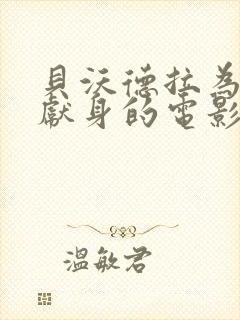 貝沃德拉為
獻身的電影
溫敏君